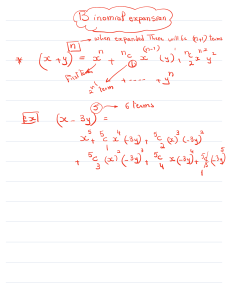 Binomial expansion
when expanded there will be (n+1) terms
* (x + y)ⁿ = xⁿ + ⁿC₁ x⁽ⁿ⁻¹⁾ (y)¹ + ⁿC₂ xⁿ⁻² y²
First term
2nd term
+ ..... + yⁿ
6 terms
Ex) (x - 3y)⁵ =
x⁵ + ⁵C₁ x⁴ (-3y) + ⁵C₂ (x)³ (-3y)²
+ ⁵C₃ (x)² (-3y)³ + ⁵C₄ x (-3y)⁴ +